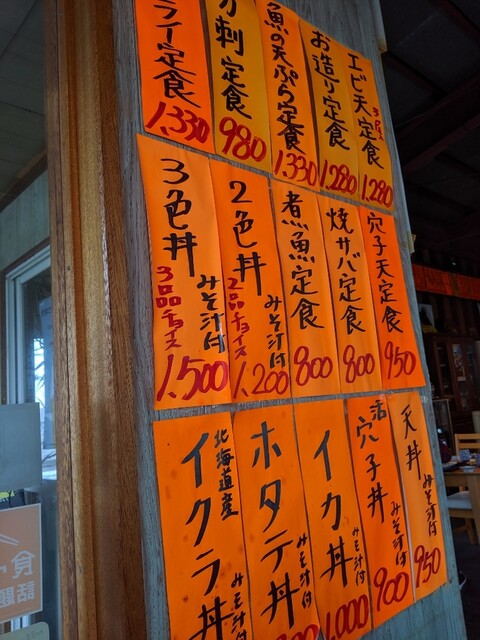 エビ天定食
3コ入
1,280
お造り定食
1,280
魚の天ぷら定食
1,330
刺定食
980
フライ定食
1,330
穴子天定食
950
焼サバ定食
800
煮魚定食
800
2色丼
みそ汁付
2品チョイス
1,200
3色丼
みそ汁付
3品チョイス
1,500
天丼
みそ汁付
950
活穴子丼
みそ汁付
900
イカ丼
みそ汁付
1,000
ホタテ丼
みそ汁付
北海道産
イクラ丼
みそ汁付
食
話題